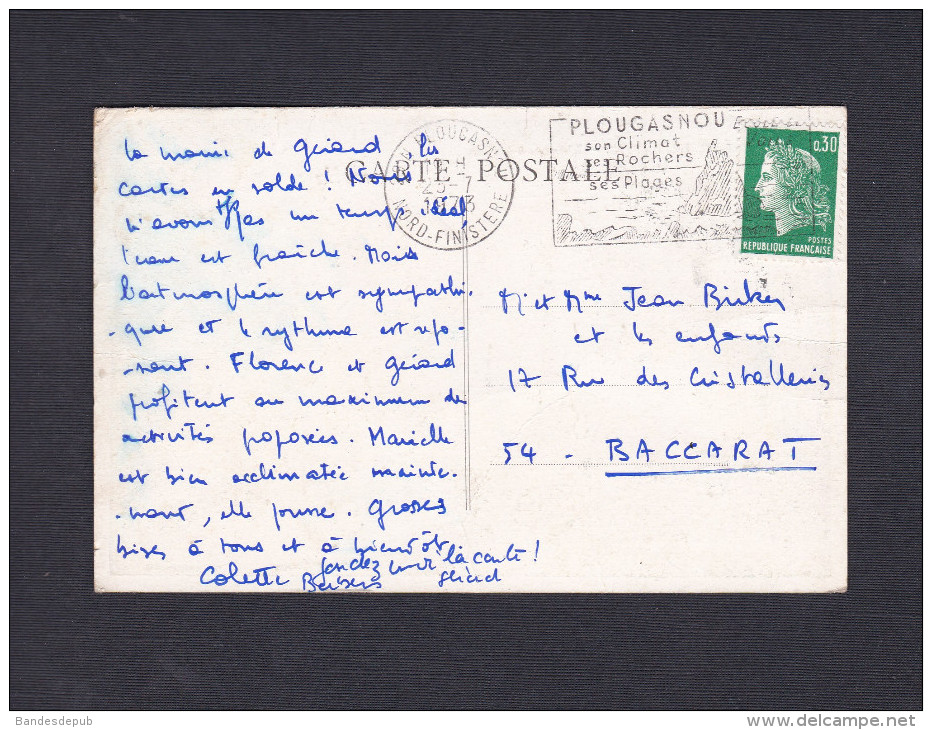 La manie de Gérard : les
cartes en solde ! Nous
n'avons pas un temps idéal,
l'eau est fraîche. Mais
l'atmosphère est sympathi-
-que et le rythme est repo-
-sant. Florence et Gérard
profitent au maximum des
activités poposées. Marielle
est bien acclimatée mainte-
-nant, elle pousse. Grosses
bises à tous et à bientôt
Colette
gardez moi la carte !
Baisers Gérard
CARTE POSTALE
PLOUGASNOU
25-7
1973
NORD-FINISTERE
PLOUGASNOU
son Climat
ses Rochers
ses Plages
0,30
POSTES
REPUBLIQUE FRANÇAISE
Mr et Mme Jean
et les enfants
17 Rue des Cristalleries
54 - BACCARAT
Bandesdepub
delcampe.net